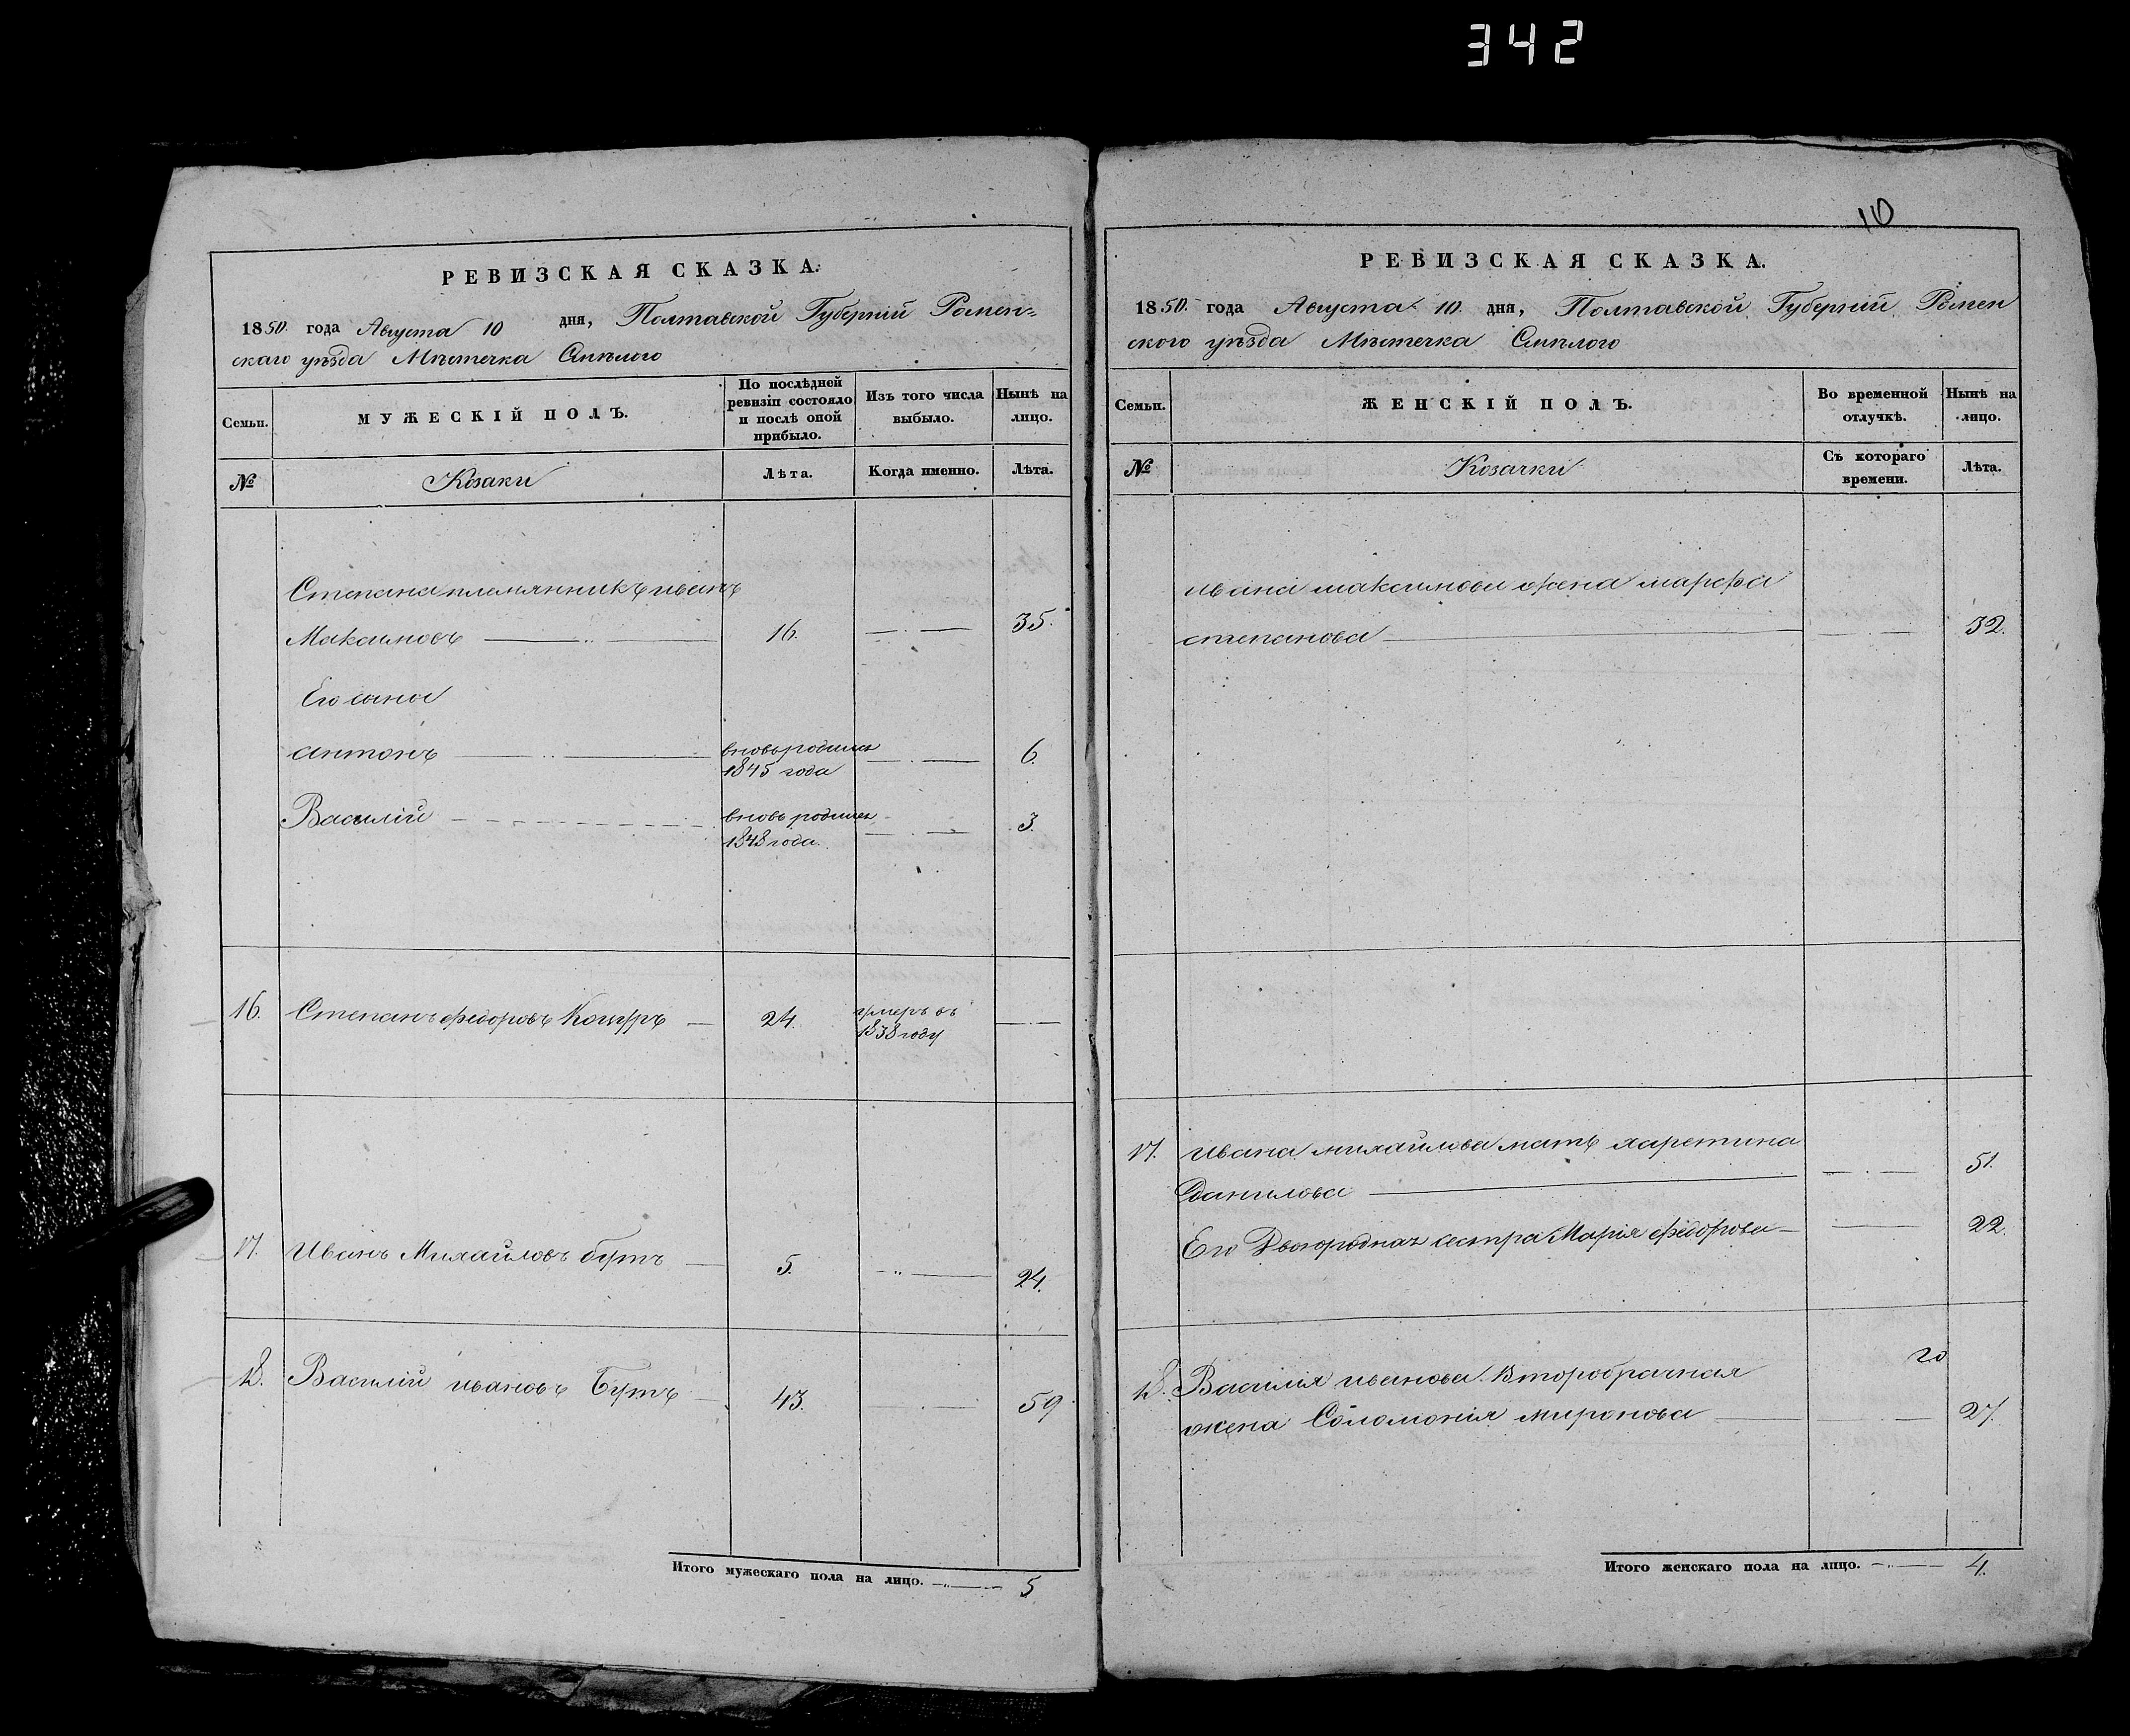 342
РЕВИЗСКАЯ СКАЗКА.
1850. года Августа 10 дня, Полтавской Губерніи Ромен-
скаго уѣзда Мѣстечка Смѣлого
Семьи.
МУЖЕСКІЙ ПОЛЪ.
По послѣдней ревизіи состояло и послѣ оной прибыло.
Изъ того числа выбыло.
Нынѣ на лицо.
№
Козаки
Лѣта.
Когда именно.
Лѣта.
Степана племянникъ иванъ
Максимовъ 16. 35.
Его сына
антонъ вновьродился 1845 года 6.
Василій вновь родился 1848 года. 3.
16. Степанъ федоровъ 24. умеръ въ 1838 году
17. Иванъ Михайловъ бутъ 5. 24.
18. Василій ивановъ Бутъ 43. 59
Итого мужескаго пола на лицо. 5
10
РЕВИЗСКАЯ СКАЗКА.
1850. года Августа 10. дня, Полтавской Губерніи Ромен
ского уѣзда Мѣстечка Смѣлого
Семьи.
ЖЕНСКІЙ ПОЛЪ.
Во временной отлучкѣ.
Нынѣ на лицо.
№
Козачки
Съ котораго времени.
Лѣта.
ивана максимова жена марфа
степанова 32.
17. ивана михайлова мать харетина
Данилова 51.
Его Двоюродная сестра Марія федорова 22.
18. Василія иванова Второбрачная
жена Соломонія миронова 27.
Итого женскаго пола на лицо. 4.